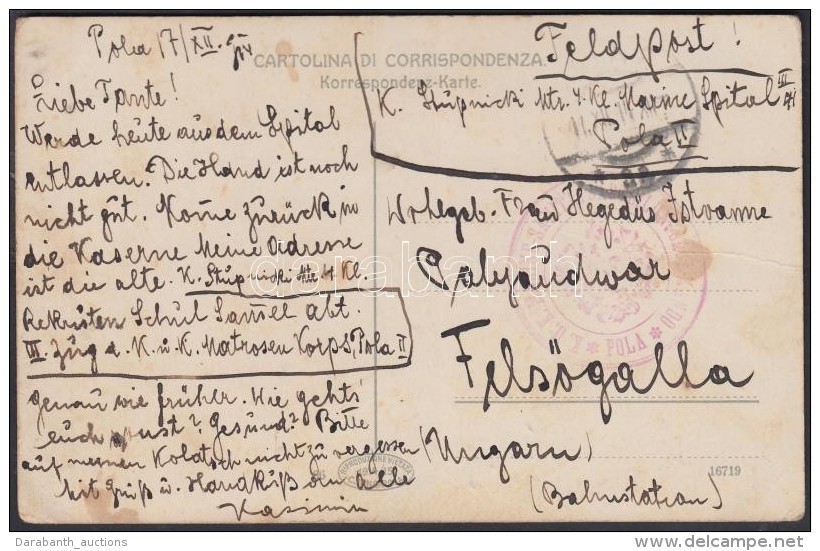 Pola 17/XII. 14
CARTOLINA DI CORRISPONDENZA.
Korrespondenz-Karte.
Feldpost!
K. Stupnicki Mts. 4. Kl. Marine Spital III
Pola II
Liebe Tante!
Werde heute aus dem Spital
entlassen. Die Hand ist noch
nicht gut. Kome zurück in
die Kaserne Meine Adresse
ist die alte. K. Stupnicki Mts 4 Kl.
Rekruten Schul abt.
III. Zug K. u. K. Matrosen Korps, Pola II
genau wie früher. Wie gehts
euch sonst? Gesund? Bitte
auf meinen Kolatsch nicht zu vergessen
Mit Gruß u. Handkuß an Alle
Kasimir
Wohlgeb. Frau Hegedüs Istvanne
Palyaudwar
Felsögalla
(Ungarn)
(Bahnstation)
POLA
16719
darabanth
Darabanth_auctions
delcampe.net